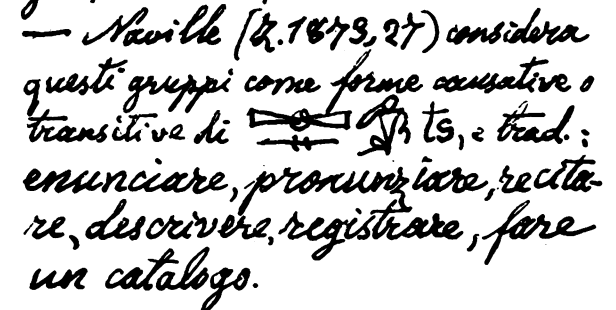 — Naville (Z. 1873, 27) considera
questi gruppi come forme causative o
transitive di ts, e trad.:
enunciare, pronunziare, recita-
re, descrivere, registrare, fare
un catalogo.